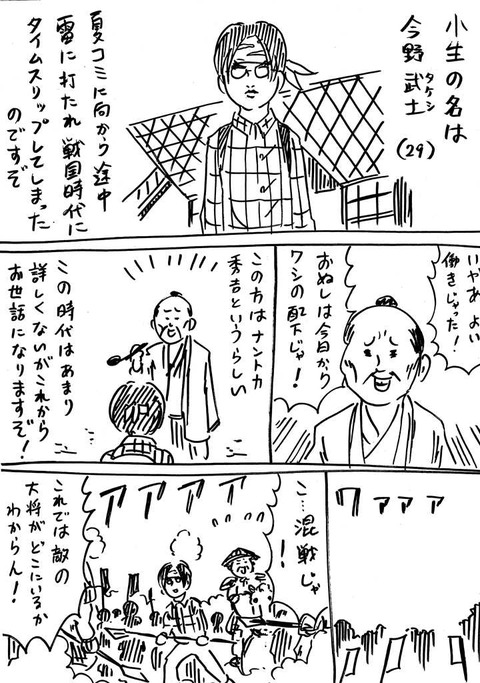 小生の名は
今野武士
タケシ
(29)
夏コミに向かう途中
雷に打たれ戦国時代に
タイムスリップしてしまった
のですぞ
いやあよい
働きじゃった!
おぬしは今日から
ワシの配下じゃ!
この方はナントカ
秀吉というらしい
この時代はあまり
詳しくないがこれから
お世話になりますぞ!
ワァァァ
こ…混戦じゃ
!
アアアア
これでは敵の
大将がどこにいるか
わからん!